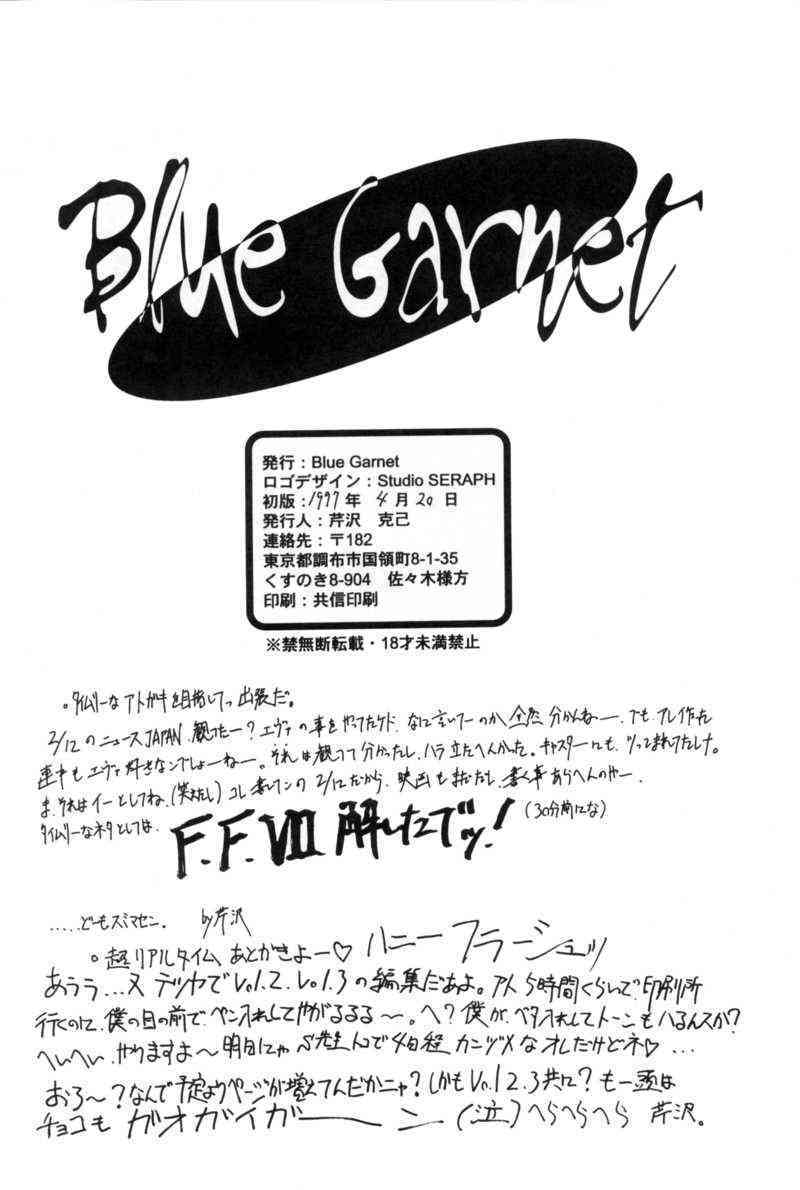 Blue Garnet
発行：Blue Garnet
ロゴデザイン：Studio SERAPH
初版：1997年 4月20日
発行人：芹沢 克己
連絡先：〒182
東京都調布市国領町8-1-35
くすのき8-904 佐々木様方
印刷：共信印刷
※禁無断転載・18才未満禁止
。タイムリーなアトガキを目指してっ出発だ。
2/12のニュースJAPAN、観たー？エヴァの事をやってたケド、なに言いてーのか全然分かんねー、でも、アレ作った
連中もエヴァ好きなんでしょーねー。それは観てて分かったし、ハラ立たへんかった。キャスターにも、ツッこまれてたしナ。
ま、それはイーとしてね、(笑) コレ書いてンの2/12だから、映画もまだだし、書く事あらへんのやー、
タイムリーなネタとしては、
F.F.VII 解したでッ！
(30分前にな)
.....どーもスミマセン。 by芹沢
。超リアルタイム、あとがきよー♡ハニーフラーシュッ
あうう...又テツヤでVol.2、Vol.3の編集だあよ。アト5時間くらいで印刷所
行くのに、僕の目の前でペン入れしてやがるるる〜。へ？僕がベタ入れしてトーンもハるんスか？
へいへい、やりますよ〜明日にゃS先生んとこで4日程カンヅメなオレだけどネ♡...
おろ〜？なんで予定よりページが増えてんだかニャ？しかもVol.2.3共に？も一頭は
チョコも ガオガイガーーン(泣)へらへらへら 芹沢。